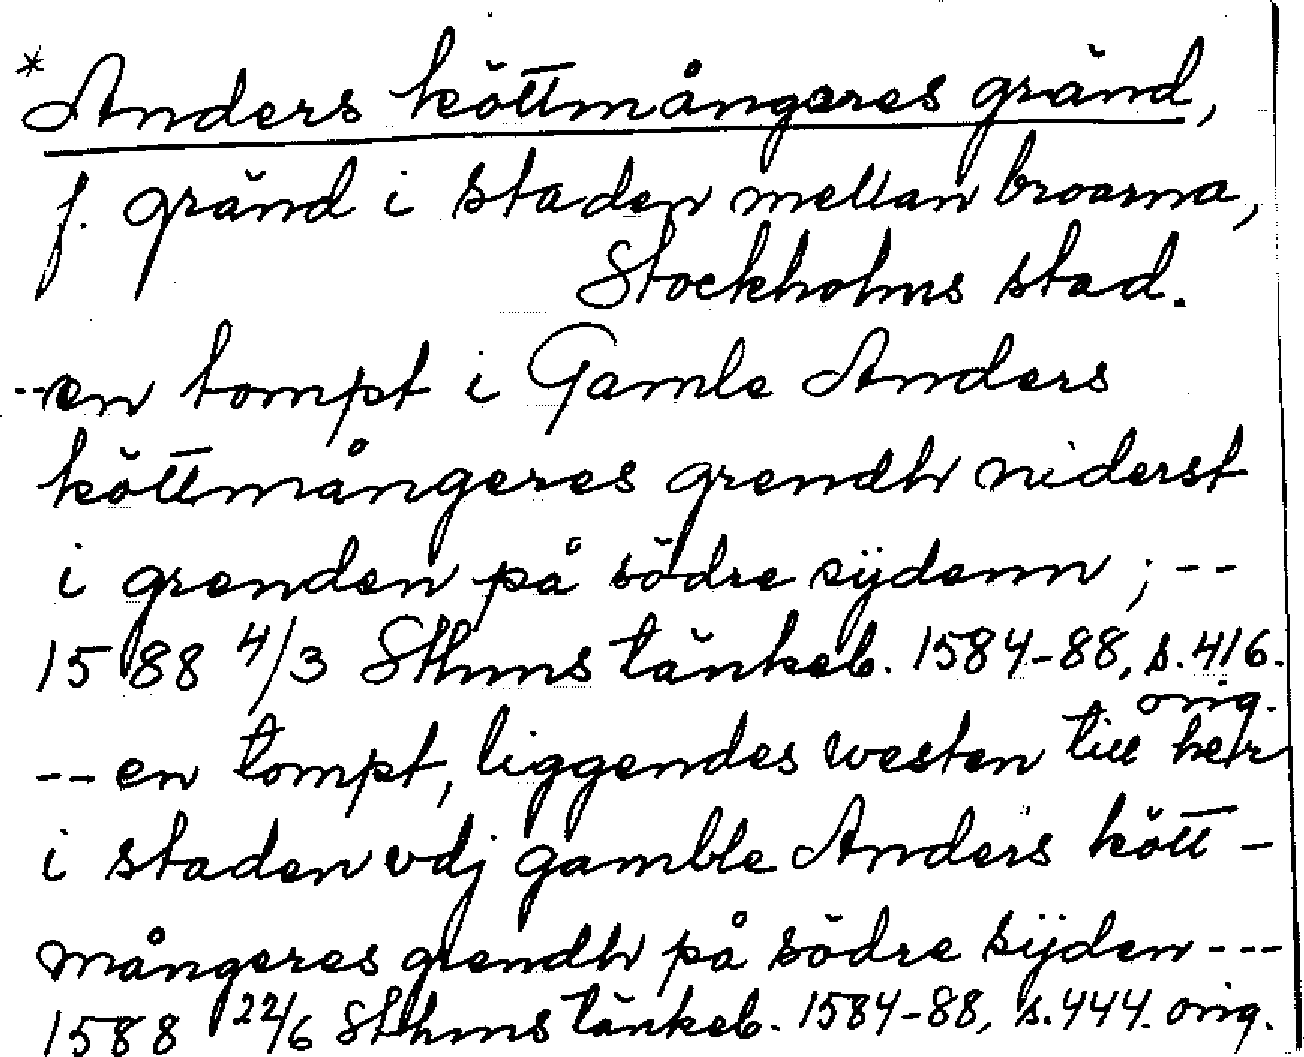 * Anders köttmångeres gränd,
f. gränd i staden mellan broarna,
Stockholms stad.
--en tompt i Gamle Anders
köttmångeres grendh niderst
i grenden på södre sijdenn ; --
1588 4/3 Sthms tänkeb. 1584-88, s. 416.
orig.
--en tompt, liggendes westen till her
i staden vdj gamble Anders kött-
mångeres grendh på södre sijden ---
1588 22/6 Sthms tänkeb. 1584-88, s. 444. orig.